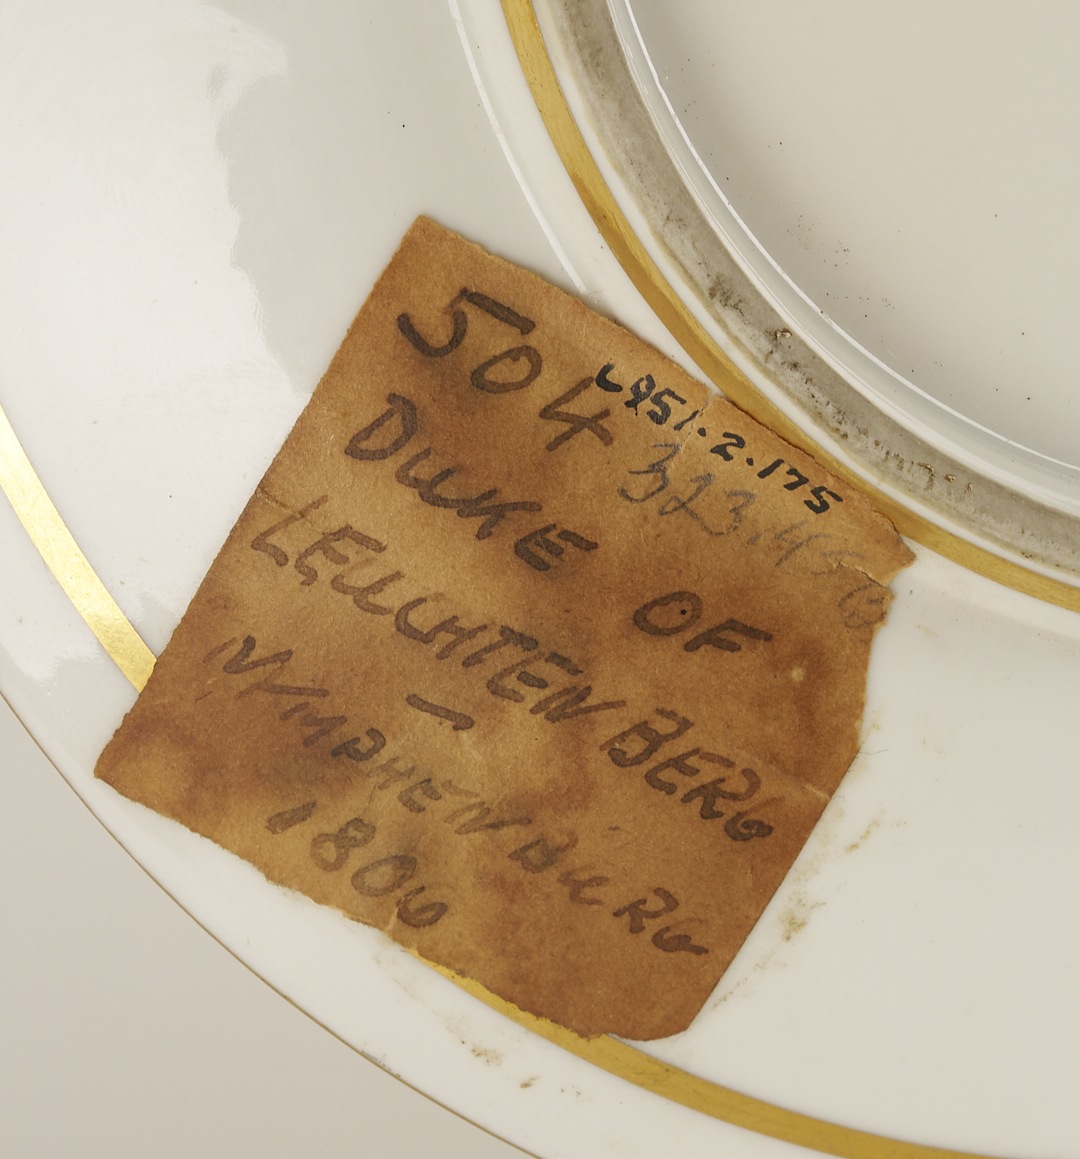 504
L951.2.175
323.45
DUKE OF
LEUCHTENBERG
—
NYMPHENBURG
1806